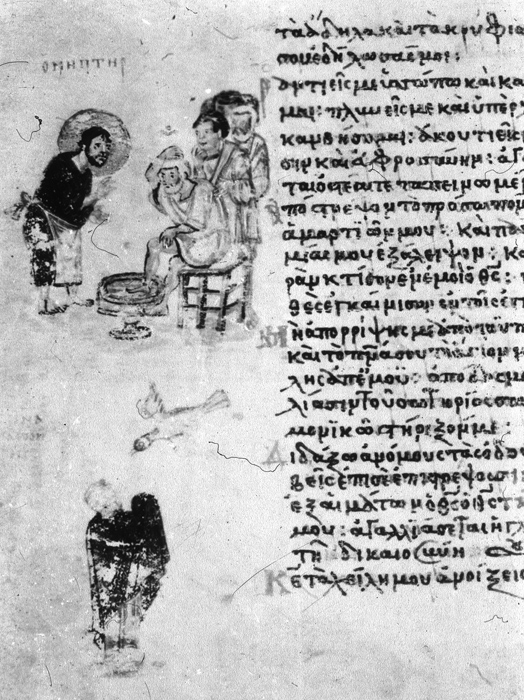 ΟΝΗΠΤΗΡ
τὰ ἄδηλα καὶ τὰ κρύφια
σου ἐδήλωσάς μοι:
ῥαντιεῖς με ὑσσώπω καὶ κα
μαι: πλυνεῖς με καὶ ὑπὲρ
κανθήσομαι: ἀκουτιεῖς
σιν καὶ εὐφροσύνην: ἀγ
ται ὀστέα τεταπεινωμέ
πόστρεψον τὸ πρόσωπον
ἁμαρτιῶν μου: καὶ πα
μίας μου ἐξάλειψον: Κα
ρὰν κτίσον ἐν ἐμοὶ ὁ θς:
θὲς ἐγκαίνισον ἐν τοῖς
Μὴ ἀπορρίψης με ἀπὸ τοῦ π
καὶ τὸ πνα σου τὸ ἅγιον μ
λης ἀπ' ἐμοῦ: ἀπόδος μο
λίασιν τοῦ σωτηρίου σου
μονικῶ στήριξόν με:
Διδάξω ἀνόμους τὰς ὁδού
βεῖς ἐπὶ σὲ ἐπιστρέψουσι
ἐξ αἱμάτων ὁ θς ὁ θς τ
μου: ἀγαλλιάσεται ἡ γλ
τὴν δικαιοσύνην
Κε τὰ χείλη μου ἀνοίξεις